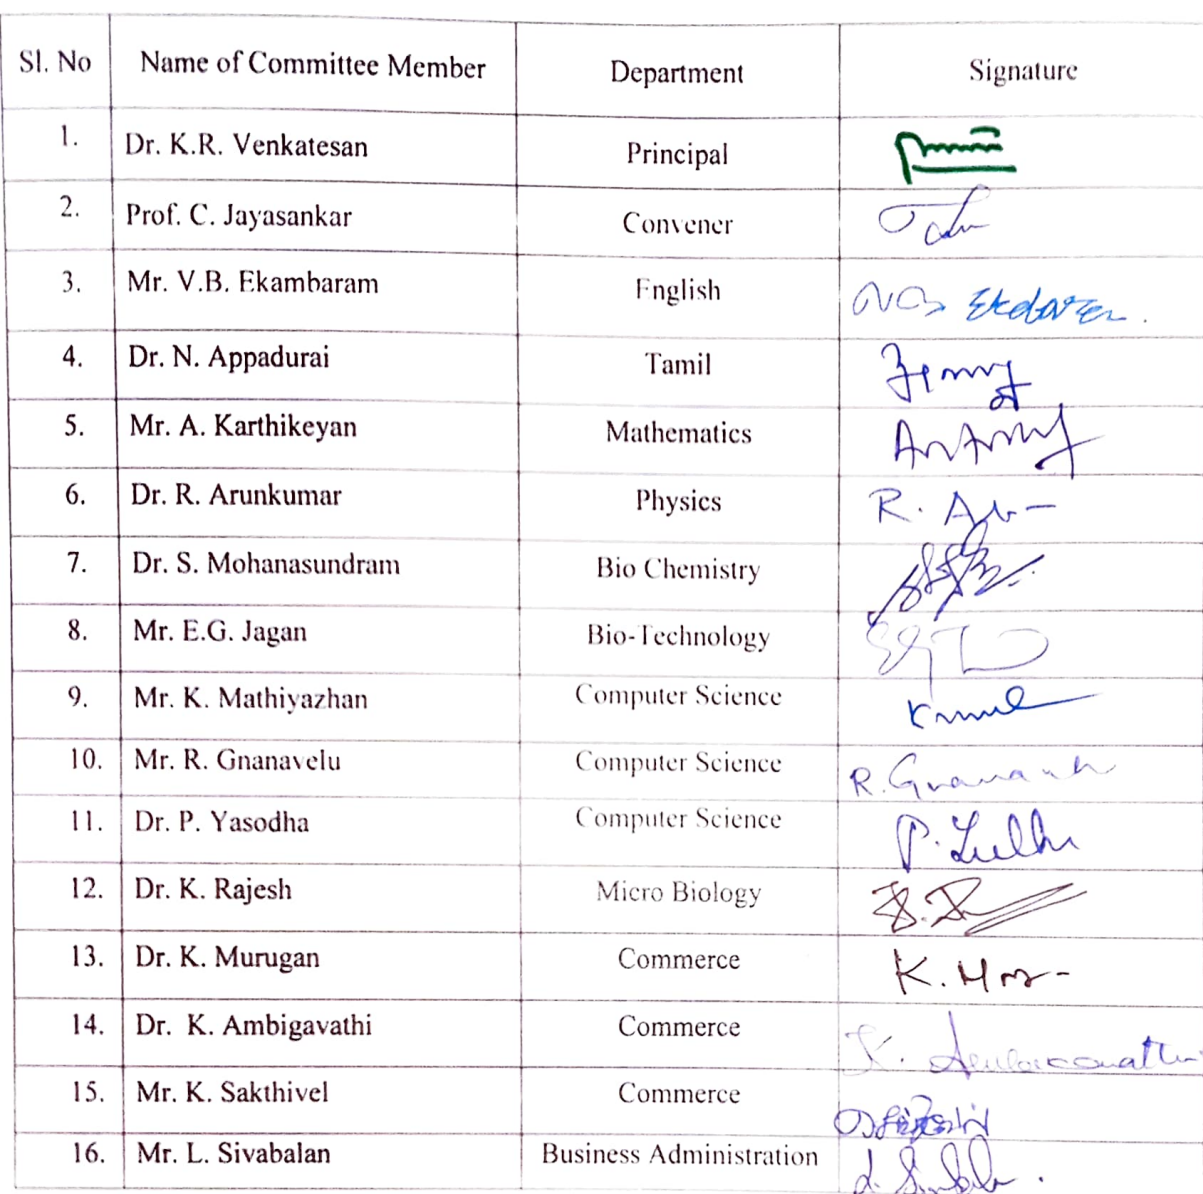 Sl. No Name of Committee Member Department Signature
1. Dr. K.R. Venkatesan Principal
2. Prof. C. Jayasankar Convener
3. Mr. V.B. Ekambaram English
4. Dr. N. Appadurai Tamil
5. Mr. A. Karthikeyan Mathematics
6. Dr. R. Arunkumar Physics R.
7. Dr. S. Mohanasundram Bio Chemistry
8. Mr. E.G. Jagan Bio-Technology
9. Mr. K. Mathiyazhan Computer Science
10. Mr. R. Gnanavelu Computer Science R.
11. Dr. P. Yasodha Computer Science P.
12. Dr. K. Rajesh Micro Biology
13. Dr. K. Murugan Commerce K.
14. Dr. K. Ambigavathi Commerce K.
15. Mr. K. Sakthivel Commerce
16. Mr. L. Sivabalan Business Administration L.